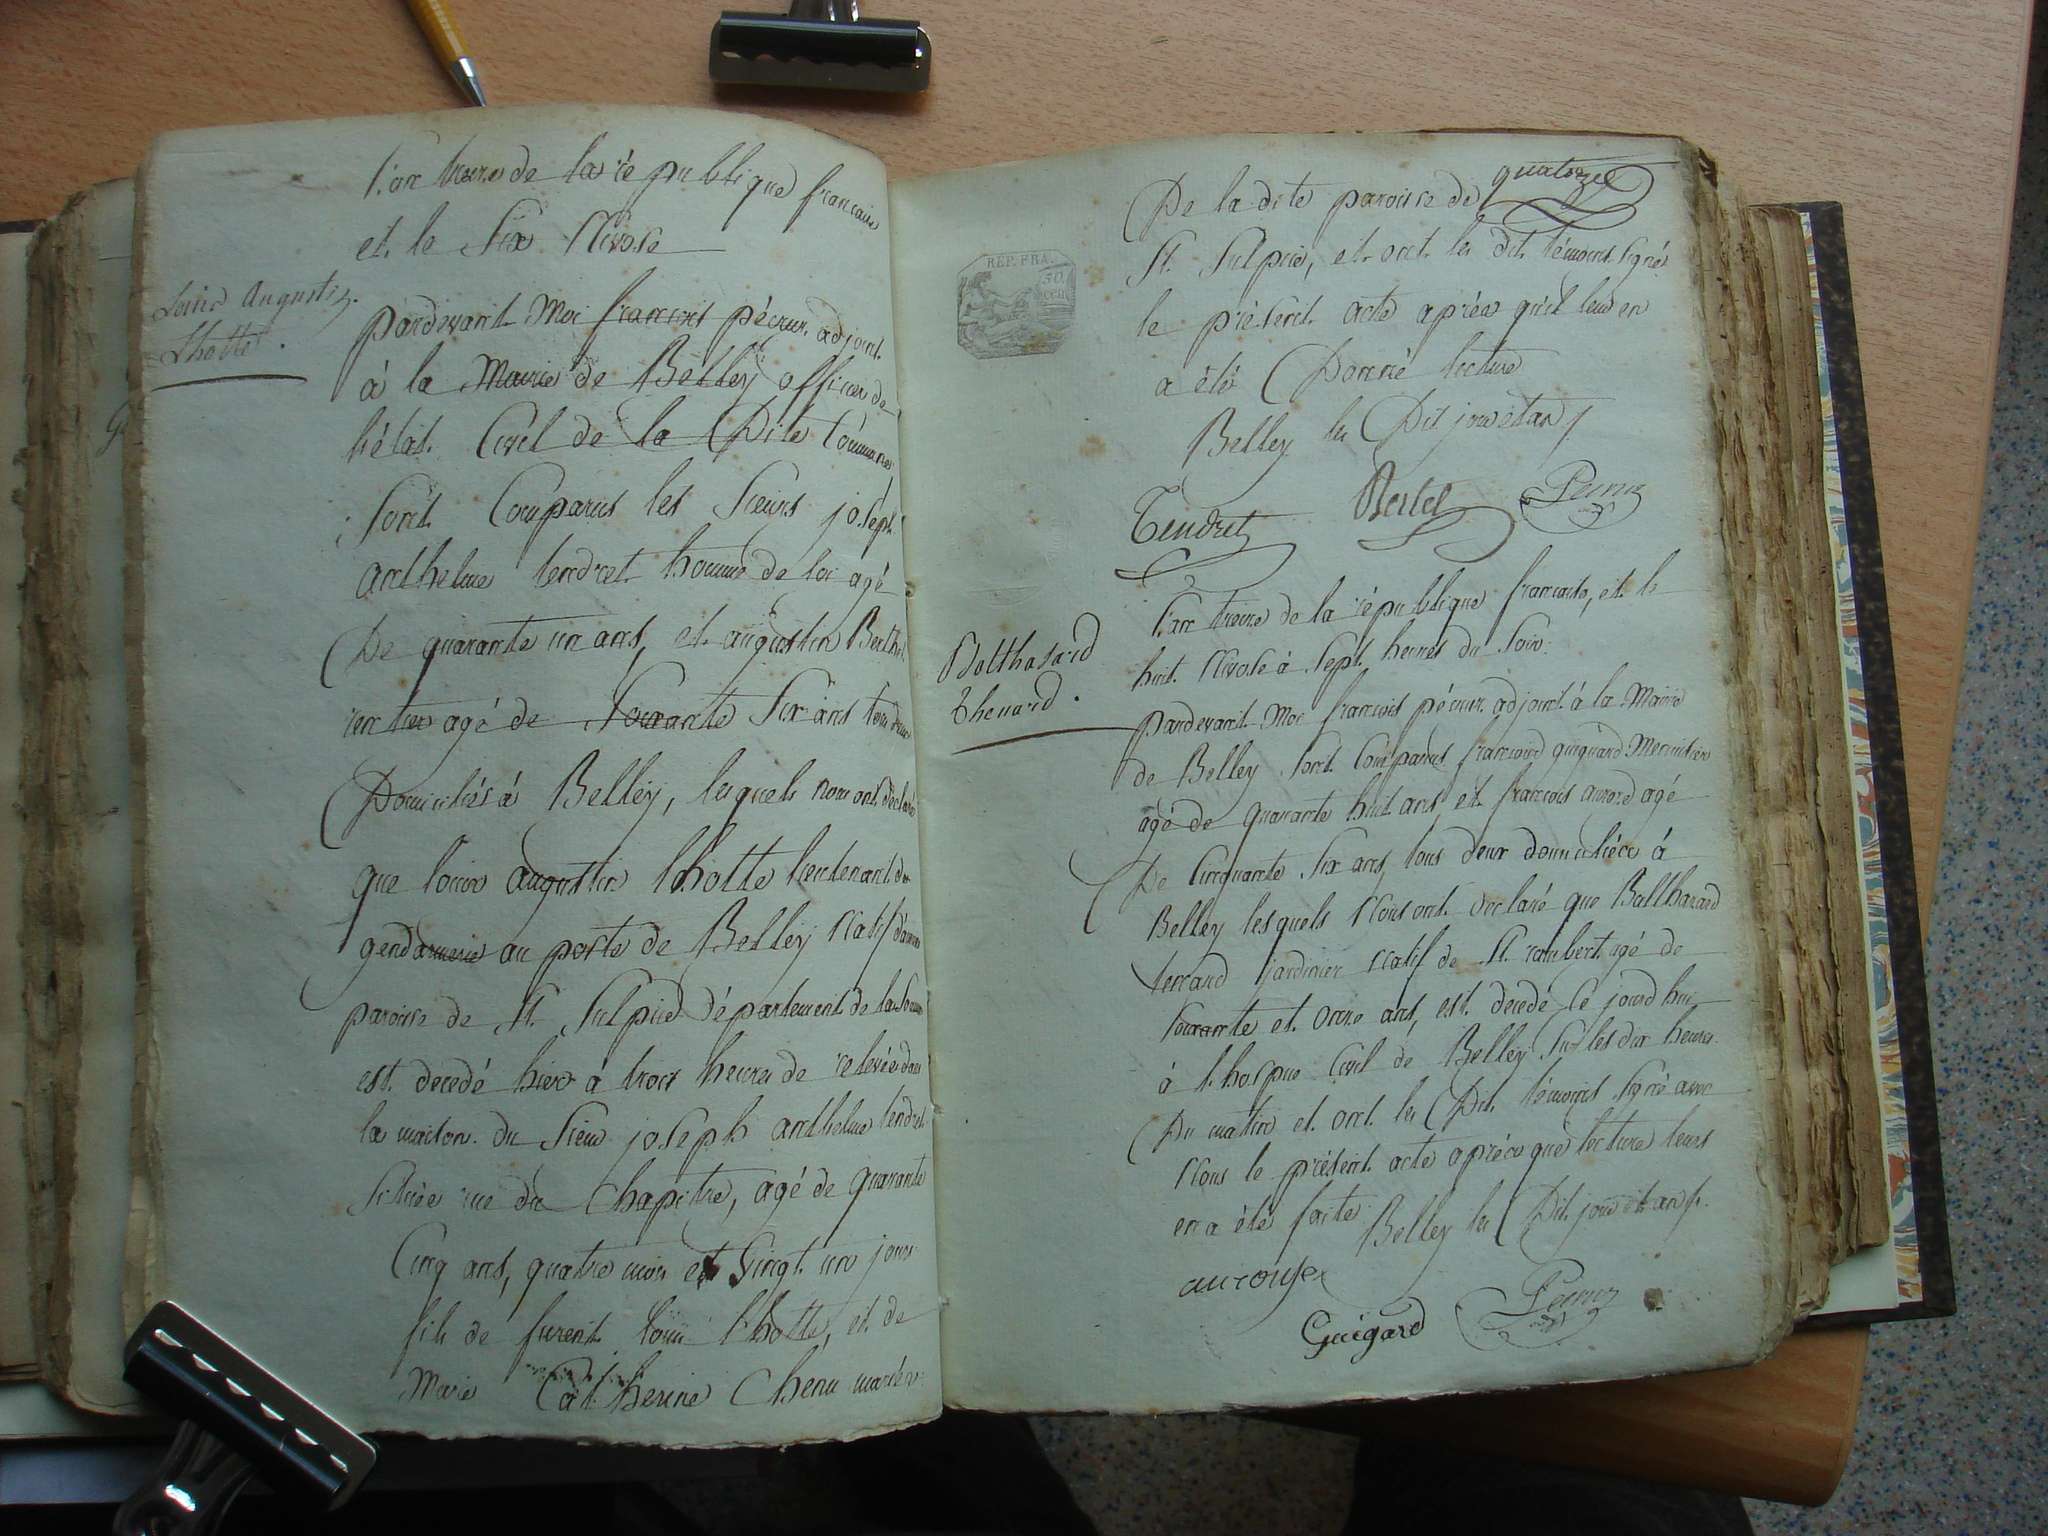 L'an treize de la république francaise
et le Six Nivose
Louis Augustin
Lhotte.
pardevant Moi francois pécour adjoint
à la Mairie de Belley officier de
l'état Civil de la Dite Commune
Sont Comparus les Sieurs joseph
anthelme tendret homme de loi agé
De quarante un ans, et augustin Berthet
rentier agé de Soixante Six ans tous deux
Domiciliés à Belley, lesquels nous ont déclaré
que louis augustin lhotte lieutenant de
gendarmerie au poste de Belley Natif
paroisse de St. Sulpice département de la Somme
est decedé hier à trois heures de relevée dans
la maison du Sieur joseph anthelme tendret
Située rue du Chapitre, agé de quarante
Cinq ans, quatre mois et vingt un jours
fils de furent louis lhotte, et de
Marie Catherine Chenu mariés
quatorze
De la dite paroisse de
St. Sulpice, et ont les dit témoins Signé
le présent acte après qu'il leur en
a été Donné lecture
Belley les Dit jour et an
REP. FRA.
50
CEN
Tendret Bertet
L'an treize de la république francaise, et le
huit Nivose à Sept heures du Soir
Balthasard
thenard.
pardevant Moi francois pécour adjoint à la Mairie
de Belley Sont Comparus francois guigard Menuisier
agé de quarante huit ans, et francois auroze agé
De Cinquante Six ans, tous deux domiciliés à
Belley lesquels Nous ont déclaré que Balthazard
tenard jardinier Natif de St. rambert agé de
Soixante et onze ans, est decedé Ce jourd'hui
à l'hospice Civil de Belley Sur les dix heures
Du matin et ont les Dit témoins Signé avec
Nous le présent acte après que lecture leurs
en a été faite Belley les Dit jour et an
auronze
Guigard